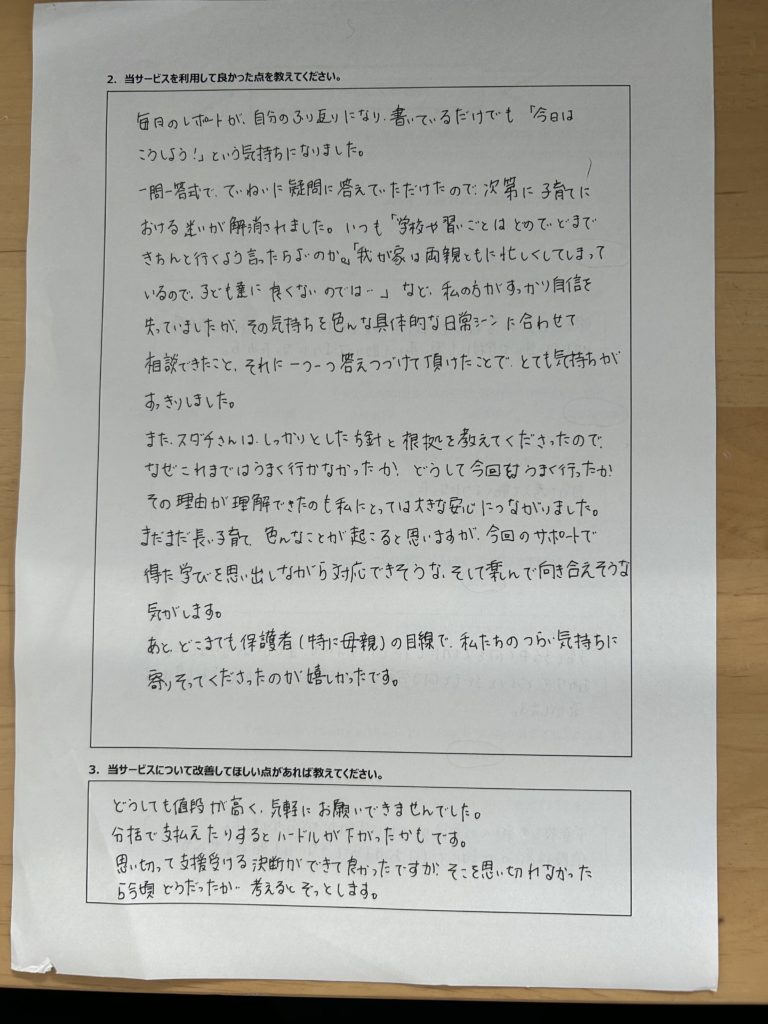 2. 当サービスを利用して良かった点を教えてください。
毎日のレポートが、自分のふり返りになり、書いているだけでも「今日は
こうしよう!」という気持ちになりました。
一問一答式で、ていねいに疑問に答えていただけたので、次第に子育てに
おける迷いが解消されました。いつも「学校や習いごとはとめでいどまで
きちんと行くよう言ったらよいのか。」「我が家は両親ともに忙しくしてしまって
いるので、子ども達に良くないのでは…」など、私の方がすっかり自信を
失っていましたが、その気持ちを色んな具体的な日常シーンに合わせて
相談できたこと、それに一つ一つ答えつづけて頂けたことで、とても気持ちが
すっきりしました。
また、スダチさんは、しっかりとした方針と根拠を教えてくださったので、
なぜこれまではうまく行かなかったか、どうして今回はうまく行ったか
その理由が理解できたのも私にとっては大きな安心につながりました。
まだまだ長い子育て、色んなことが起こると思いますが、今回のサポートで
得た学びを思い出しながら対応できそうな、そして楽んで向き合えそうな
気がします。
あと、どこまでも保護者(特に母親)の目線で、私たちのつらい気持ちに
寄りそってくださったのが嬉しかったです。
3. 当サービスについて改善してほしい点があれば教えてください。
どうしても値段が高く、気軽にお願いできませんでした。
分括で支払えたりするとハードルが下がったかもです。
思い切って支援受ける決断ができて良かったですが、そこを思い切れなかった
ら今頃どうだったか… 考えるとぞっとします。